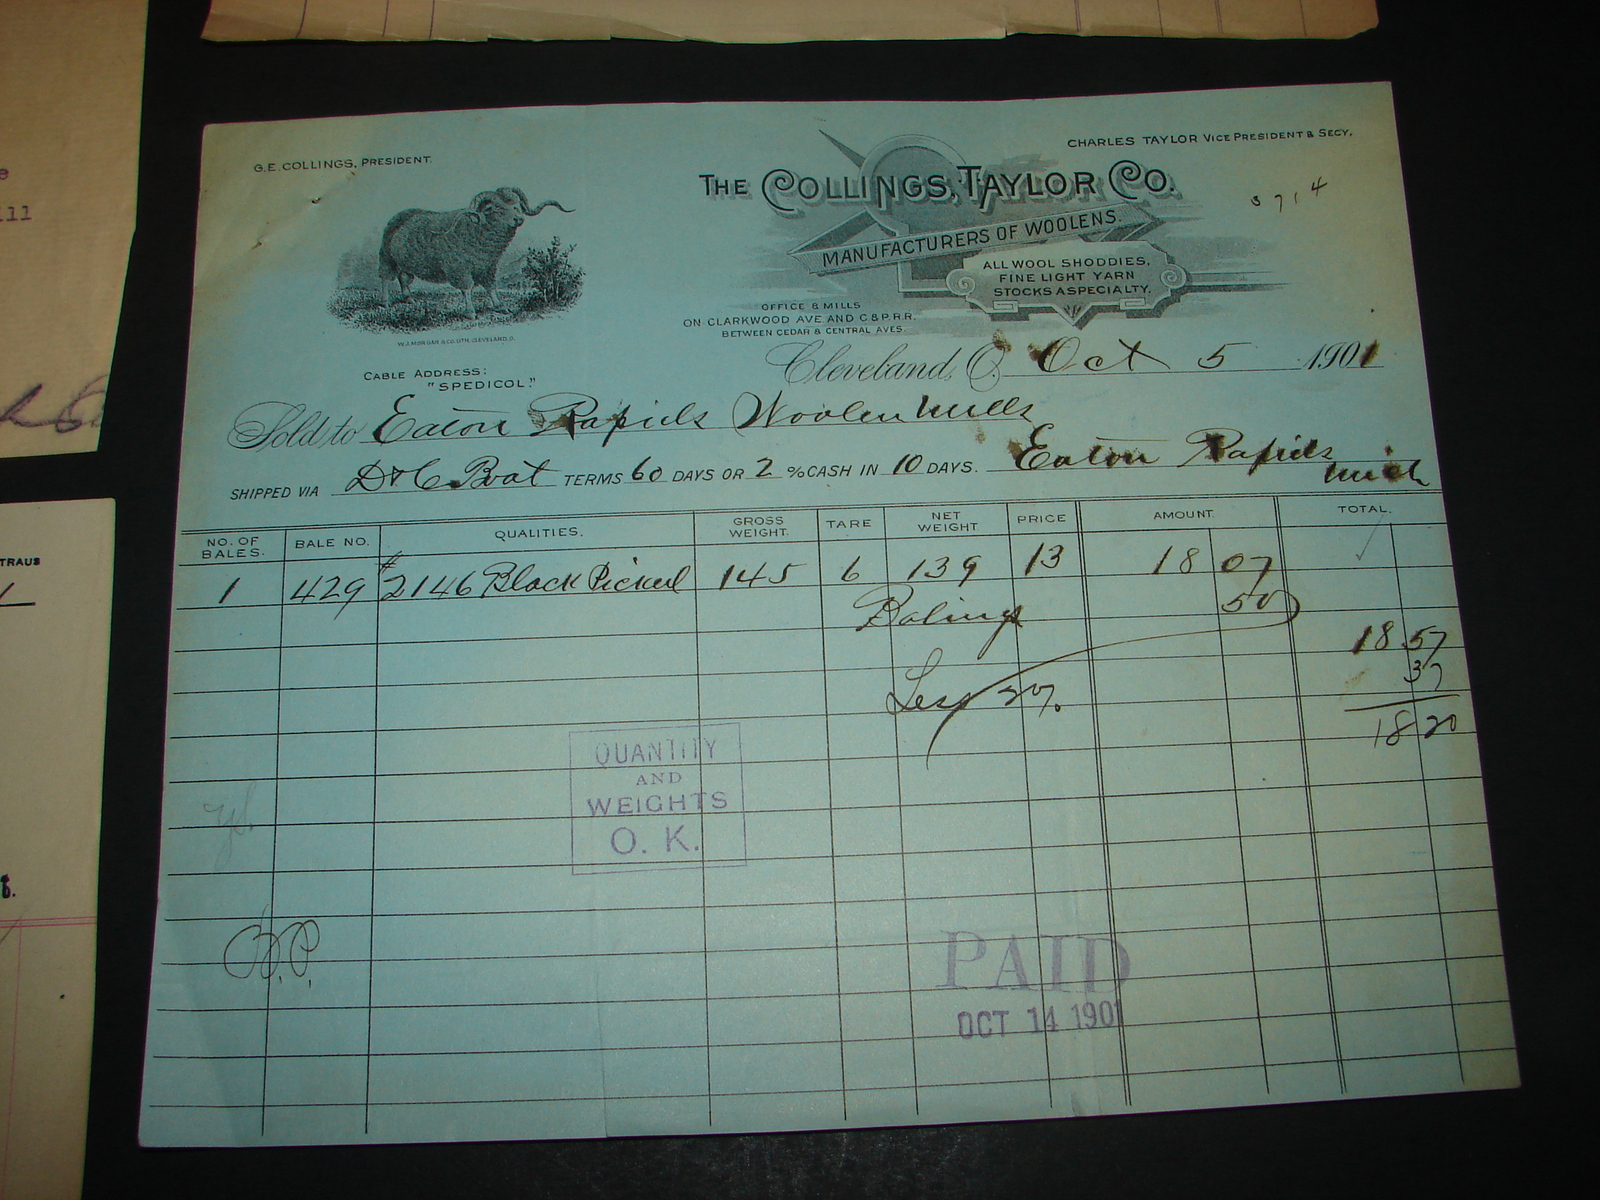 G.E. COLLINGS, PRESIDENT.
CHARLES TAYLOR VICE PRESIDENT & SECY.
THE COLLINGS, TAYLOR CO.
3714
MANUFACTURERS OF WOOLENS.
ALL WOOL SHODDIES,
FINE LIGHT YARN
STOCKS A SPECIALTY.
OFFICE & MILLS
ON CLARKWOOD AVE AND C & P. R.R.
BETWEEN CEDAR & CENTRAL AVES.
W.J. MORGAN & CO. LITH. CLEVELAND, O.
CABLE ADDRESS:
"SPEDICOL."
Cleveland, O. Oct 5 1901
Sold to Eaton Rapids Woolen Mills
SHIPPED VIA D & C Boat TERMS 60 DAYS OR 2 % CASH IN 10 DAYS. Eaton Rapids
Mich
NO. OF BALES. BALE NO. QUALITIES. GROSS WEIGHT. TARE NET WEIGHT PRICE AMOUNT. TOTAL.
1 429 #2146 Black Picked 145 6 139 13 18 07
Baling 50
18 57
Less 2%. 37
18 20
QUANTITY
AND
WEIGHTS
O. K.
PAID
OCT 14 1901
ill
TRAUS